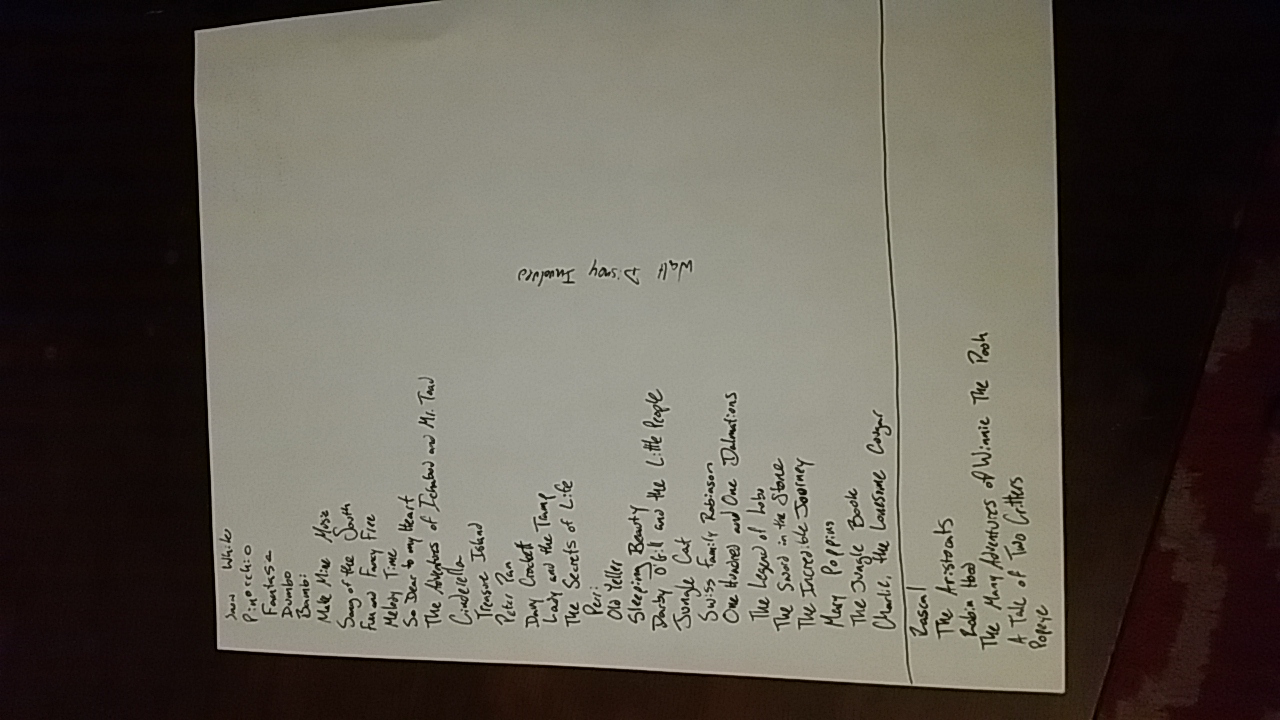 Snow White
Pinocchio
Fantasia
Dumbo
Bambi
Make Mine Music
Song of the South
Fun and Fancy Free
Melody Time
So Dear to my Heart
The Adventures of Ichabod and Mr. Toad
Cinderella
Treasure Island
Peter Pan
Davy Crockett
Lady and the Tramp
The Secrets of Life
Perri
Old Yeller
Sleeping Beauty
Darby O'Gill and the Little People
Jungle Cat
Swiss Family Robinson
One Hundred and One Dalmations
The Legend of Lobo
The Sword in the Stone
The Incredible Journey
Mary Poppins
The Jungle Book
Charlie, the Lonesome Cougar
Walt Disney Involved
Rascal
The Aristocats
Robin Hood
The Many Adventures of Winnie The Pooh
A Tale of Two Critters
Popeye